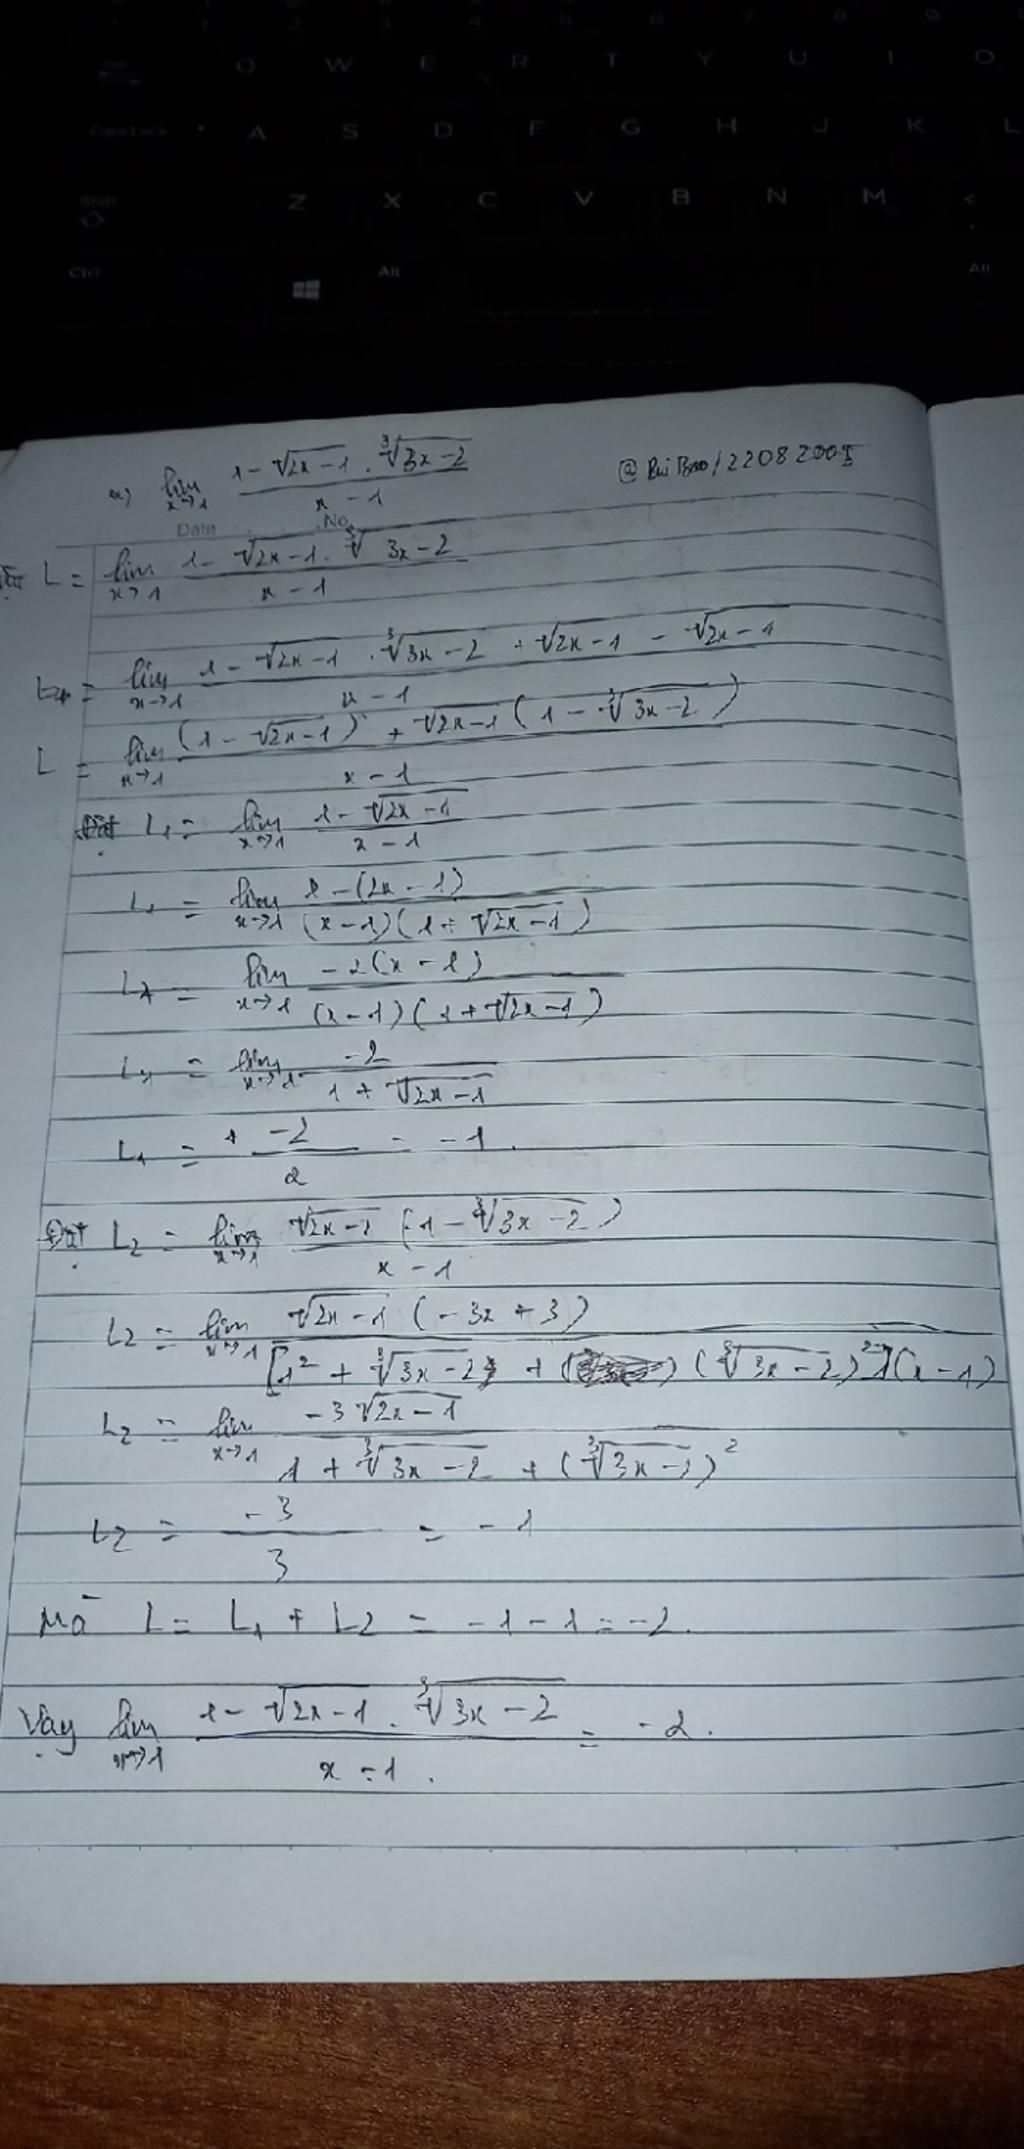 Q W E R T Y U I O
Caps Lock A S D F G H J K L
Shift Z X C V B N M <
Ctrl Alt Alt
a, lim x→1 (1 - √(2x-1) . ∛(3x-2)) / (x - 1)
Date No
L = lim x→1 (1 - √(2x-1) . ∛(3x-2)) / (x - 1)
= lim x→1 (1 - √(2x-1) . ∛(3x-2) + √(2x-1) - √(2x-1)) / (x - 1)
L = lim x→1 ((1 - √(2x-1)) + √(2x-1) (1 - ∛(3x-2))) / (x - 1)
Đặt L₁ = lim x→1 (1 - √(2x-1)) / (x - 1)
L₁ = lim x→1 (1 - (2x - 1)) / ((x - 1)(1 + √(2x-1)))
L₁ = lim x→1 (-2(x - 1)) / ((x - 1)(1 + √(2x-1)))
L₁ = lim x→1 (-2) / (1 + √(2x-1))
L₁ = -2 / 2 = -1.
Đặt L₂ = lim x→1 (√(2x-1) (1 - ∛(3x-2))) / (x - 1)
L₂ = lim x→1 (√(2x-1) (-3x + 3)) / ([1² + ∛(3x-2) + (∛(3x-2))²](x - 1))
L₂ = lim x→1 (-3√(2x-1)) / (1 + ∛(3x-2) + (∛(3x-2))²)
L₂ = -3 / 3 = -1
Mà L = L₁ + L₂ = -1 - 1 = -2.
Vậy lim x→1 (1 - √(2x-1) . ∛(3x-2)) / (x - 1) = -2.